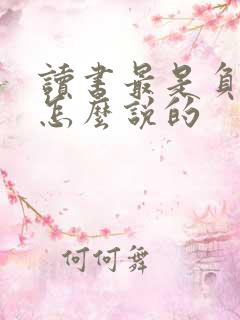 讀書最是
怎麼說的
何何舞